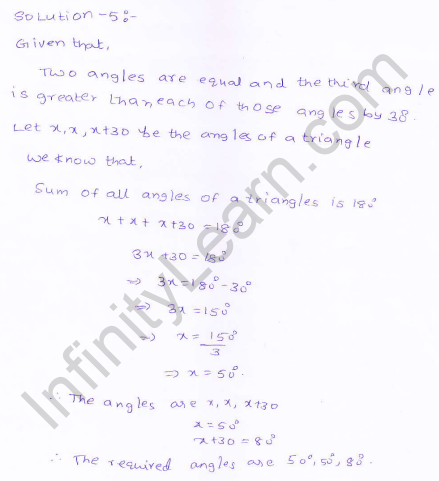 Solution-5:-
Given that,
Two angles are equal and the third angle
is greater than each of those angles by 30.
Let x, x, x+30 be the angles of a triangle
we know that,
Sum of all angles of a triangles is 180°
x + x + x+30 = 180°
3x+30 = 180°
=> 3x = 180° - 30°
=> 3x = 150°
=> x = 150°
3
=> x = 50°.
∴ The angles are x, x, x+30
x = 50°
x+30 = 80°
∴ The required angles are 50°, 50°, 80°.
InfinityLearn.com